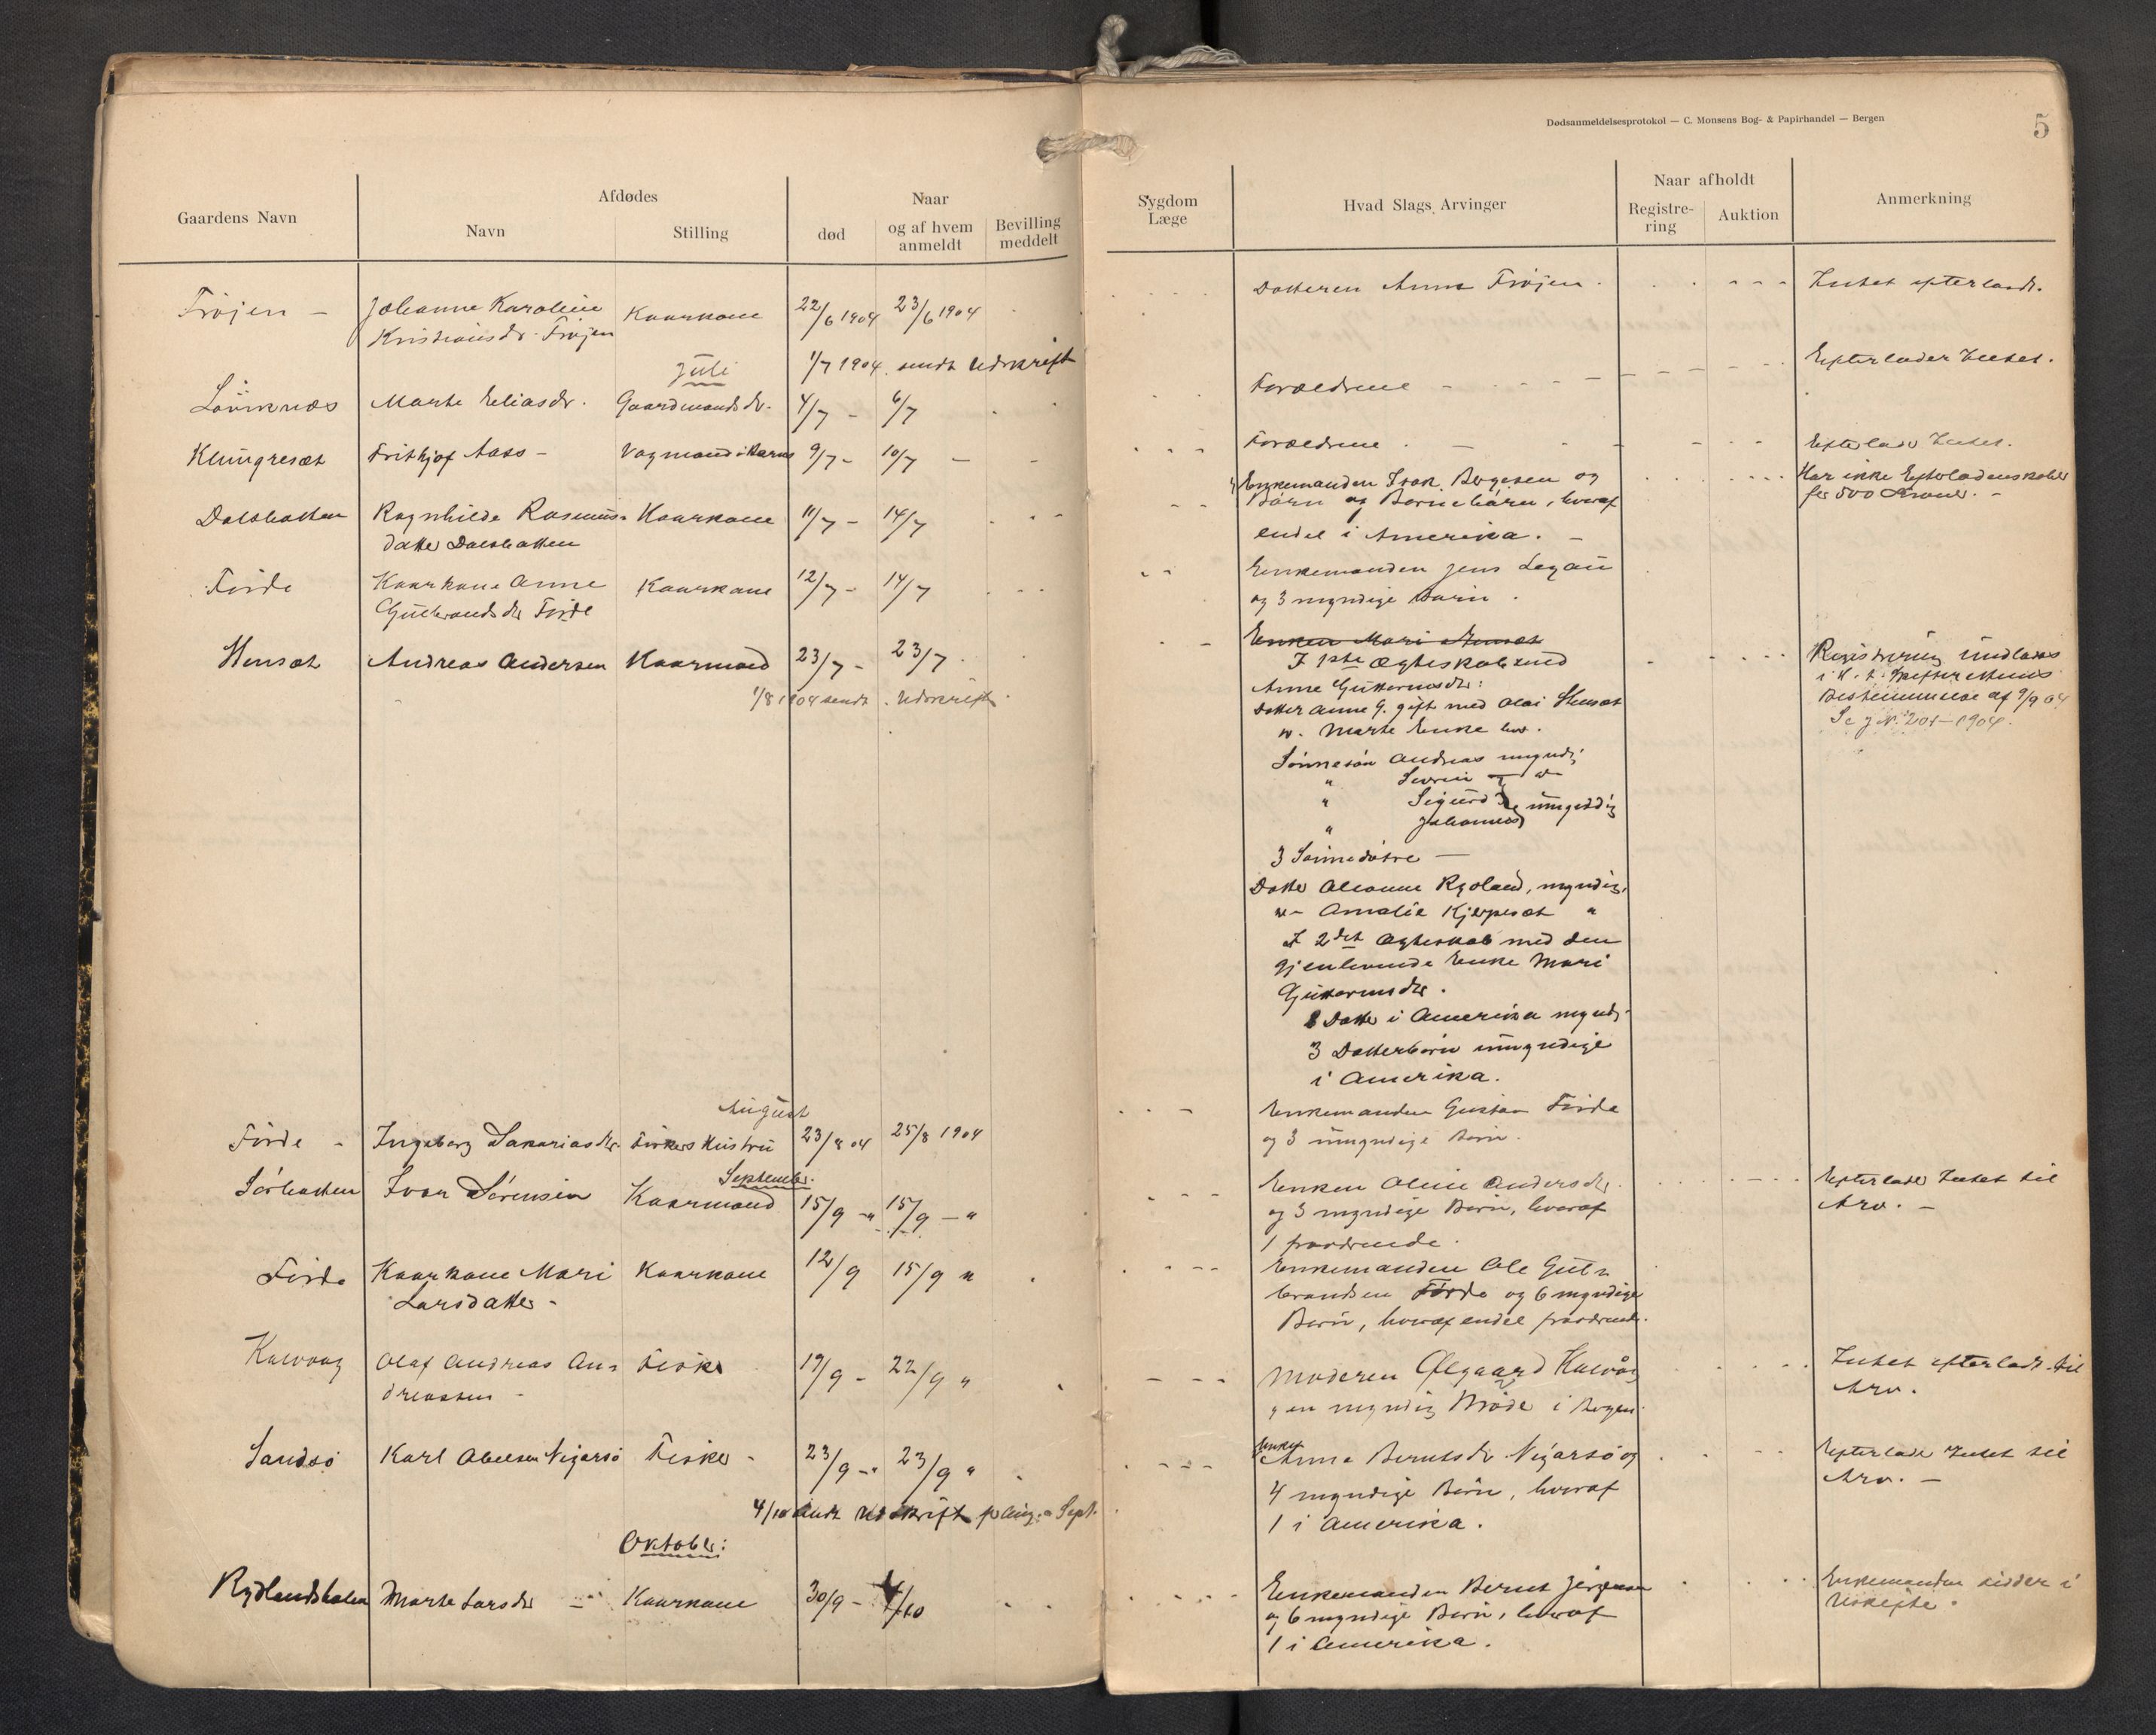 Dødsanmeldelsesprotokol — C. Monsens Bog- & Papirhandel — Bergen
5
Gaardens Navn
Afdødes
Navn
Stilling
Naar
død
og af hvem
anmeldt
Bevilling
meddelt
Sygdom
Læge
Hvad Slags Arvinger
Naar afholdt
Registre-
ring
Auktion
Anmerkning
Frøjen – Johanne Karoline Kaarkone 22/6 1904 23/6 1904
Kristiansdr. Frøjen
Datteren Anna Frøjen. Intet efterladt.
Juli 1/7 1904 sendt Udskrift
Marte Eliasdr. Gaardmandsdr. 4/7 – 6/7
Forældrene – Efterlader Intet.
Klungresæt Frithjof Aass – 9/7 – 10/7 –
Forældrene. – Efterlader Intet.
Dalsbotten Ragnhilde Rasmus- Kaarkone 11/7 – 14/7
datter Dalsbotten
Enkemanden Isak Børgesen og
Børn og Børnebørn, hvoraf
endel i Amerika. –
Har ikke Efterladenskaber
for 500 Kroner. –
Førde Kaarkone Anne Kaarkone 12/7 – 14/7
Gulbrandsdtr Førde
Enkemanden Jens
og 3 myndige Børn.
Henset Andreas Andersen Kaarmand 23/7 – 23/7.
1/8 1904 sendt Udskrift.
Enken Mari Henset
I 1ste Ægteskab med
Anne Guttormsdtr:
Datter Anne G. gift med Olai Henset
w. Marte Enke
Sønnesøn Andreas myndig
" Severin – w –
" Sigurd og umyndig
" Johannes
3 Sønnedøtre –
Datter Oleanne Rysland, myndig.
w – Amalie Kjerpeset "
I 2det Ægteskab med den
gjenlevende Enke Mari
Guttormsdtr.
1 Datter i Amerika myndig.
3 Datterbørn umyndige
i Amerika.
Registrering undlades
i H. t.
Bestemmelse af 9/9 04
Se J.N. 201–1904.
August
Førde – Ingeborg Sakariasdtr. Fiskers Hustru 23/8 04 25/8 1904
Enkemanden Gustav Førde
og 3 umyndige Børn.
September.
Sørbotten Ivar Sørensen Kaarmand 15/9 – " 15/9 – "
Enken Oline Andersdtr.
og 3 myndige Børn, hvoraf
1 fraværende.
Efterlader Intet til
Arv. –
Førde Kaarkone Mari Kaarkone 12/9 15/9 "
Larsdatter –
Enkemanden Ole Gul-
brandsen Førde og 6 myndige
Børn, hvoraf endel fraværende.
Kalvaag Olaf Andreas An- Fisker 19/9 – 22/9 "
dreassen –
Moderen Ølegaard Kalvåg
og en myndig Broder i Bergen.
Intet efterladt til
Arv.
Sandsø Karl Abelsen Nigarsø Fisker – 23/9 – " 23/9 "
Enken
Anna Berntsdr Nigarsø og
4 myndige Børn, hvoraf
1 i Amerika.
Efterlader Intet til
Arv. –
4/10 sendt Udskrift for Aug. – Sept.
Oktober:
Rydlandsholm Marte Larsdtr – Kaarkone 30/9 – 4/10
Enkemanden Bernt Jørgensen
og 6 myndige Børn, hvoraf
1 i Amerika.
Enkemanden sidder i
Uskifte.